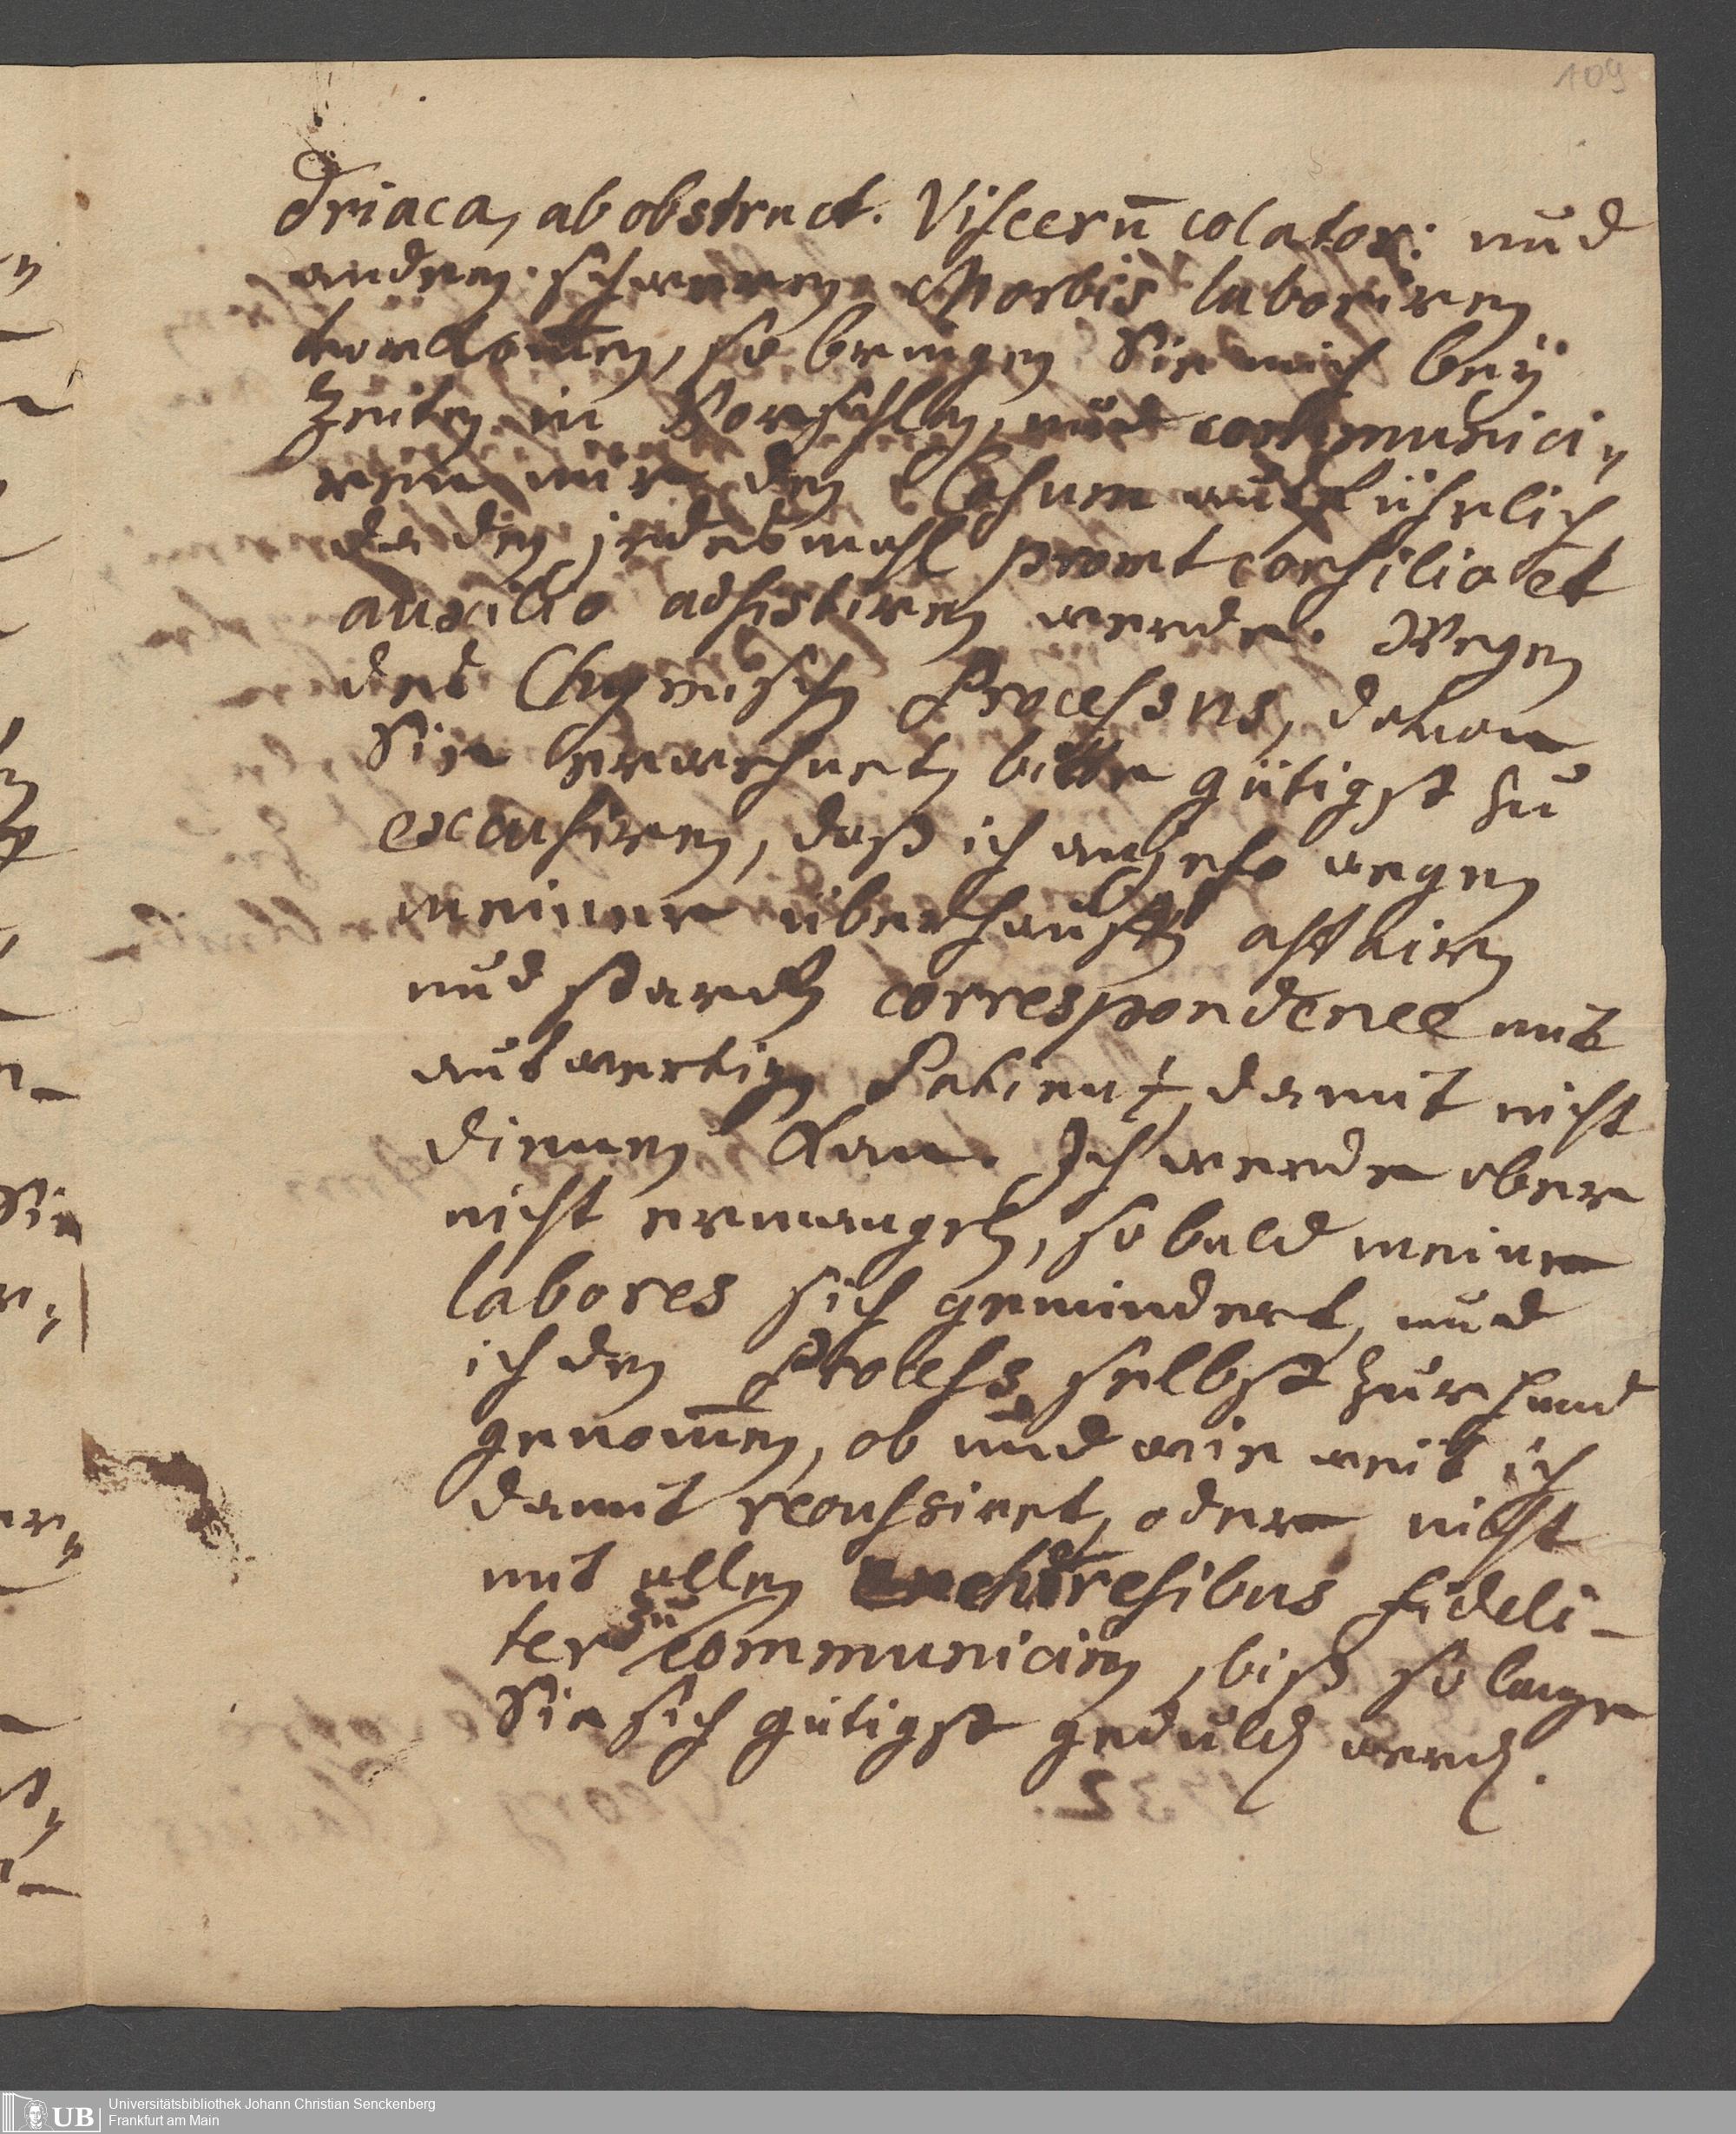 109
driaca, ab obstruct. Viscerū colator: und
andren schweren Morbis laboriren
vorkom̅en, so bringen Sie mich beÿ
Zeiten in Vorschlag, und communici„
ren mir den Casum ausführlich
da den jedesmahl promt consilio et
auxilio adsistiren werde. Wegen
des Chymischen Processus, davon
Sie erwehnet, bitte gütigst zu
excusiren, daß ich anjezo wegen
meiner überhäufften
und starcken correspondence mit
auswertigen Patient, damit nicht
dienen kan. Ich werde aber
nicht ermangeln, so bald meine
labores sich gemindert, und
ich den Process selbst zur hand
genom̅en, ob und wie weit ich
damit reoussiret, oder nicht
mit allen encheiresibus fideli-
ter zu communiciren, biß so lange
Sie sich gütigst gedulden werden.
UB
Universitätsbibliothek Johann Christian Senckenberg
Frankfurt am Main